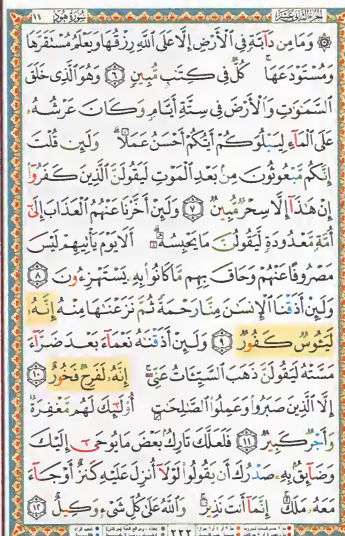 الجزء الثاني عشر سورة هود ١١
۞ وَمَا مِن دَآبَّةٍ فِى ٱلْأَرْضِ إِلَّا عَلَى ٱللَّهِ رِزْقُهَا وَيَعْلَمُ مُسْتَقَرَّهَا
وَمُسْتَوْدَعَهَا ۚ كُلٌّ فِى كِتَٰبٍ مُّبِينٍ ۝٦ وَهُوَ ٱلَّذِى خَلَقَ
ٱلسَّمَٰوَٰتِ وَٱلْأَرْضَ فِى سِتَّةِ أَيَّامٍ وَكَانَ عَرْشُهُۥ
عَلَى ٱلْمَآءِ لِيَبْلُوَكُمْ أَيُّكُمْ أَحْسَنُ عَمَلًا ۗ وَلَئِن قُلْتَ
إِنَّكُم مَّبْعُوثُونَ مِنۢ بَعْدِ ٱلْمَوْتِ لَيَقُولَنَّ ٱلَّذِينَ كَفَرُوٓا۟
إِنْ هَٰذَآ إِلَّا سِحْرٌ مُّبِينٌ ۝٧ وَلَئِنْ أَخَّرْنَا عَنْهُمُ ٱلْعَذَابَ إِلَىٰٓ
أُمَّةٍ مَّعْدُودَةٍ لَّيَقُولُنَّ مَا يَحْبِسُهُۥٓ ۗ أَلَا يَوْمَ يَأْتِيهِمْ لَيْسَ
مَصْرُوفًا عَنْهُمْ وَحَاقَ بِهِم مَّا كَانُوا۟ بِهِۦ يَسْتَهْزِءُونَ ۝٨
وَلَئِنْ أَذَقْنَا ٱلْإِنسَٰنَ مِنَّا رَحْمَةً ثُمَّ نَزَعْنَٰهَا مِنْهُ إِنَّهُۥ
لَيَـُٔوسٌ كَفُورٌ ۝٩ وَلَئِنْ أَذَقْنَٰهُ نَعْمَآءَ بَعْدَ ضَرَّآءَ
مَسَّتْهُ لَيَقُولَنَّ ذَهَبَ ٱلسَّيِّـَٔاتُ عَنِّىٓ ۚ إِنَّهُۥ لَفَرِحٌ فَخُورٌ ۝١٠
إِلَّا ٱلَّذِينَ صَبَرُوا۟ وَعَمِلُوا۟ ٱلصَّٰلِحَٰتِ أُو۟لَٰٓئِكَ لَهُم مَّغْفِرَةٌ
وَأَجْرٌ كَبِيرٌ ۝١١ فَلَعَلَّكَ تَارِكٌۢ بَعْضَ مَا يُوحَىٰٓ إِلَيْكَ
وَضَآئِقٌۢ بِهِۦ صَدْرُكَ أَن يَقُولُوا۟ لَوْلَآ أُنزِلَ عَلَيْهِ كَنزٌ أَوْ جَآءَ
مَعَهُۥ مَلَكٌ ۚ إِنَّمَآ أَنتَ نَذِيرٌ ۚ وَٱللَّهُ عَلَىٰ كُلِّ شَىْءٍ وَكِيلٌ ۝١٢
٢٢٢